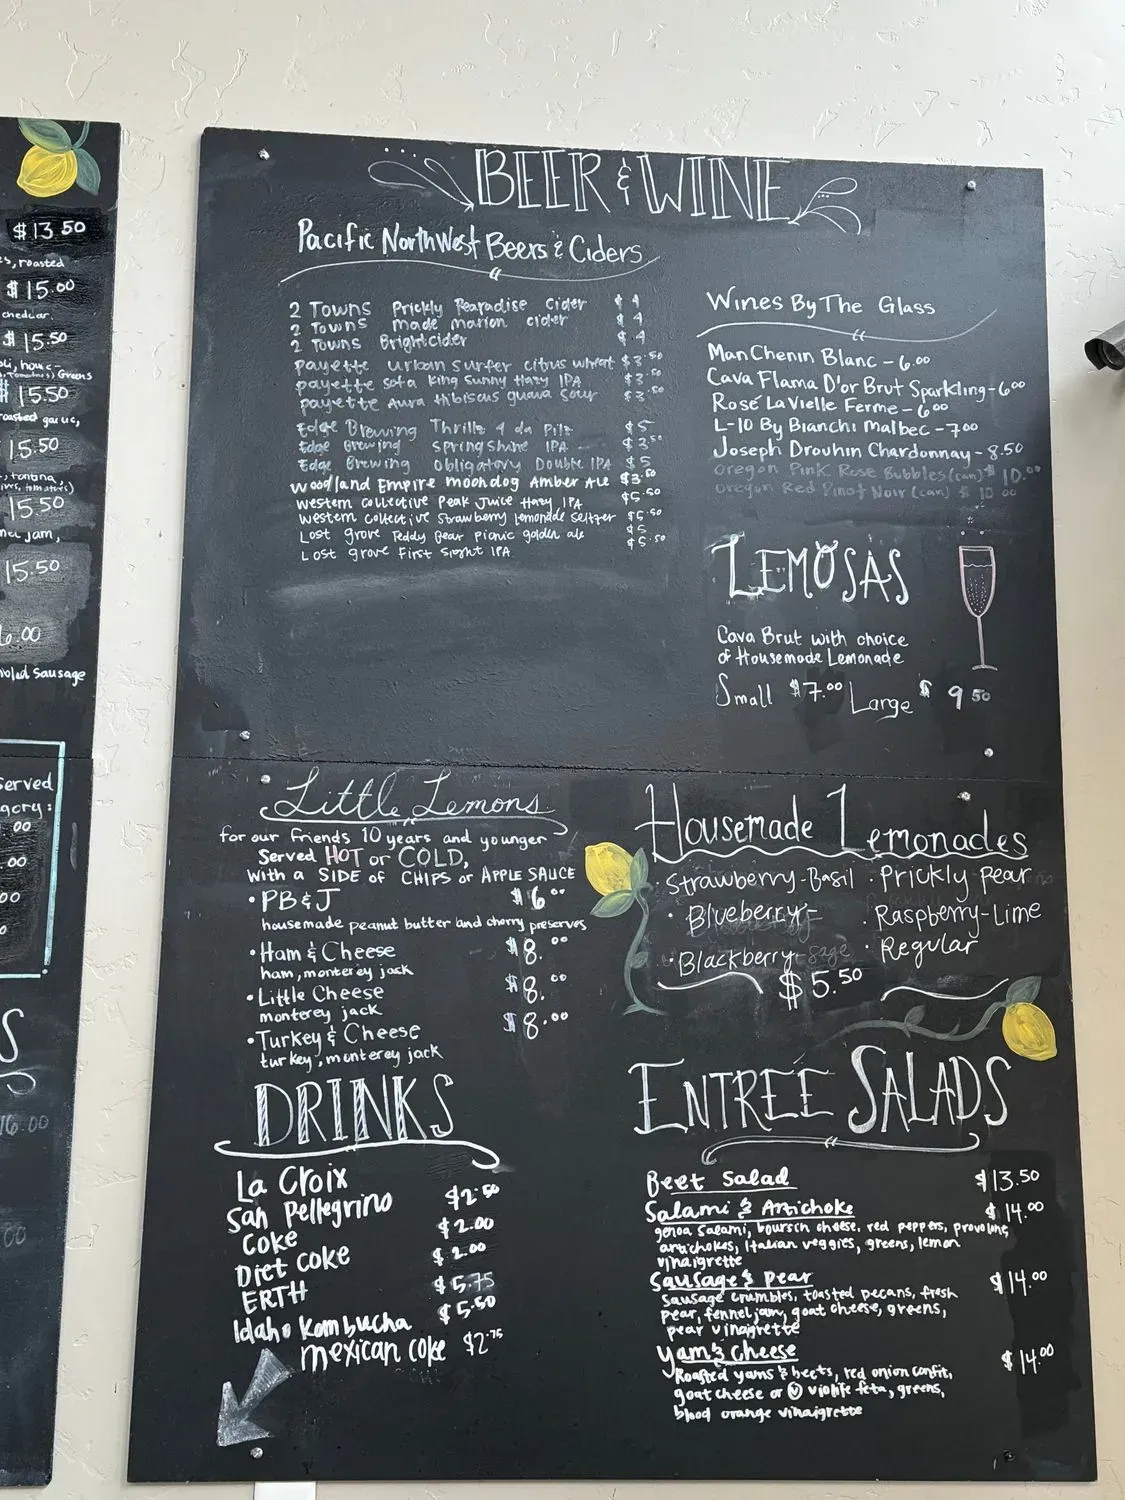 $13.50
s, roasted
$15.00
chedar.
$15.50
$15.50
Greens
15.50
15.50
nel jam,
15.50
6.00
Sausage
served
00
.00
00
0
S
16.00
00
BEER & WINE
Pacific NorthWest Beers & Ciders
2 Towns Prickly Pearadise Cider $4
2 Towns made marion cider $4
2 Towns Bright cider $4
payette urban surfer citrus wheat $3.50
payette sofa king Sunny Hazy IPA $3.50
payette Aura hibiscus guava Sour $3.50
Edge Brewing Thrills 4 da Pils $5
Edge Brewing Springshine IPA $3.50
Edge Brewing Obligatory Double IPA $5
Woodland Empire moondog Amber Ale $3.50
western collective Peak Juice Hazy IPA $5.50
western collective Strawberry lemonade Seltzer $5.50
Lost grove Teddy Bear picnic golden ale $5
Lost grove First Sight IPA $5.50
Wines By The Glass
Man Chenin Blanc - 6.00
Cava Flama D'or Brut Sparkling - 6.00
Rosé La Vielle Ferme - 6.00
L-10 By Bianchi Malbec - 7.00
Joseph Drouhin Chardonnay - 8.50
Oregon Pink Rose Bubbles (can) $10.00
Oregon Red Pinot Noir (can) $10.00
LEMOSAS
Cava Brut with choice
of Housemade Lemonade
Small $7.00 Large $9.50
Little Lemons
for our friends 10 years and younger
Served HOT or COLD,
with a SIDE of CHIPS or APPLE SAUCE
• PB & J $6.00
housemade peanut butter and cherry preserves
• Ham & Cheese $8.00
ham, monterey jack
• Little Cheese $8.00
monterey jack
• Turkey & Cheese $8.00
turkey, monterey jack
Housemade Lemonades
• Strawberry-Basil • Prickly pear
• Blueberry • Raspberry-Lime
• Blackberry-sage • Regular
$5.50
DRINKS
La Croix
San Pellegrino $2.50
Coke $2.00
Diet Coke $2.00
ERTH $5.75
Idaho Kombucha $5.50
mexican coke $2.75
ENTREÉ SALADS
Beet Salad $13.50
Salami & Artichoke $14.00
genoa salami, boursin cheese, red peppers, provolone,
artichokes, Italian veggies, greens, lemon
vinaigrette
Sausage & pear $14.00
Sausage crumbles, toasted pecans, fresh
pear, fennel jam, goat cheese, greens,
pear vinaigrette
Yam & Cheese $14.00
Roasted yams & beets, red onion confit,
goat cheese or Ⓥ violife feta, greens,
blood orange vinaigrette